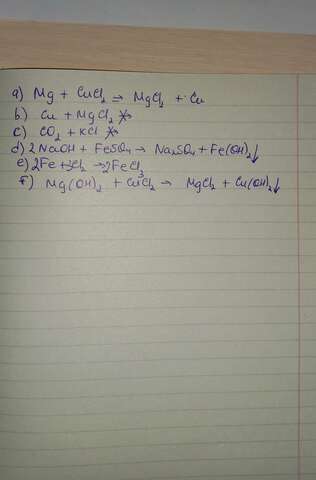 a) Mg + CuCl₂ → MgCl₂ + Cu
b) Cu + MgCl₂ ↛
c) CO₂ + KCl ↛
d) 2NaOH + FeSO₄ → Na₂SO₄ + Fe(OH)₂↓
e) 2Fe + 3Cl₂ → 2FeCl₃
f) Mg(OH)₂ + CuCl₂ → MgCl₂ + Cu(OH)₂↓